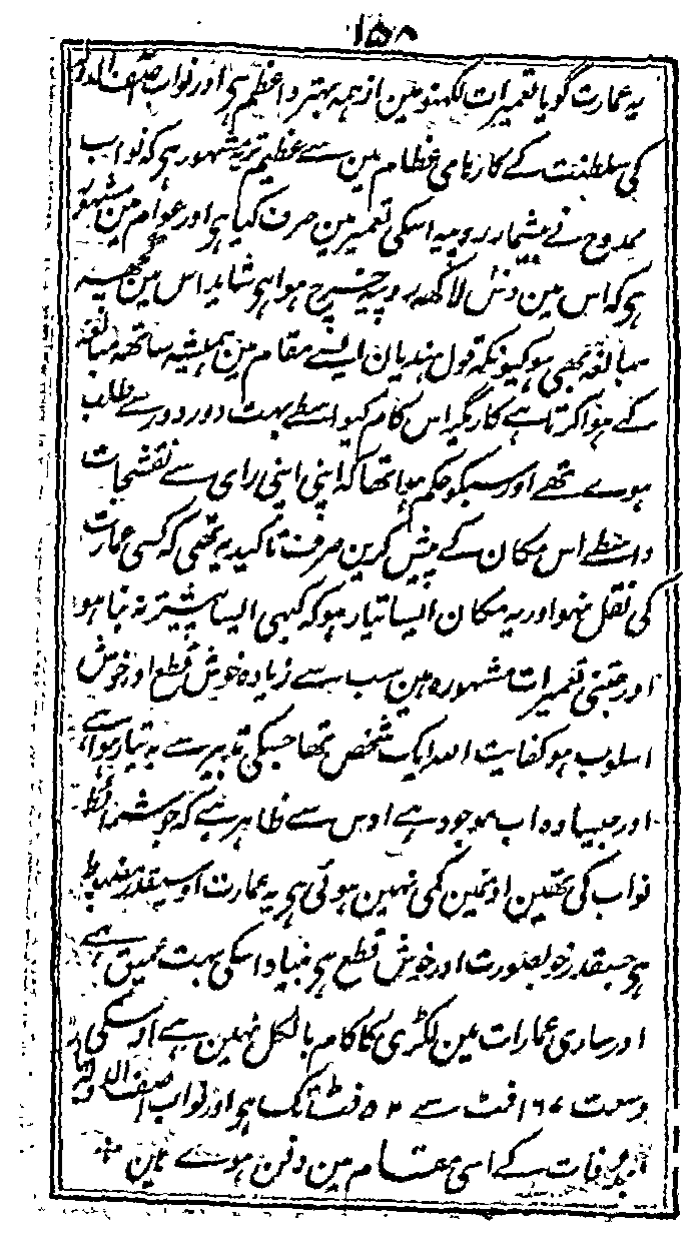 ۱۵۸
یہ عمارت گویا تعمیرات لکھنو مین از ہمہ بہتر و اعظم ہی اور نواب آصف الدولہ
کی سلطنت کے کارہامی عظام مین سے عظیم تر یہ مشہور ہی کہ نواب
ممدوح نے بیشمار روپیہ اسکی تعمیر مین صرف کیا ہی اور عوام مین مشہور
ہی کہ اس مین دنل لاکھہ روپیہ خرچ ہوا ہو شاید اس مین کچھہ
مبالغہ بھی ہو کیونکہ قول ہندیان ایسے مقام مین ہمیشہ ساتھہ مبالغہ
کے ہوا کرتا ہے کاریگر اس کام کیواسطے بہت دور دور سے طلب
ہوے تھے اور سبکو حکم ہوا تھا کہ اپنی اپنی رای سے نقشجات
واسطے اس مکان کے پیش کرین صرف تاکید یہ تھی کہ کسی عمارت
کی نقل نہو اور یہ مکان ایسا تیار ہو کہ کبھی ایسا پیشتر نہ بنا ہو
اور جتنی تعمیرات مشہورہ ہین سب سے زیادہ خوش قطع اور خوش
اسلوب ہو کفایت اللہ ایک شخص تھا جسکی تدبیر سے یہ تیار ہوا ہے
اور جیسا وہ اب موجود ہے اوس سے ظاہر ہے کہ جو شرائط
نواب کی تھین اونمین کمی نہین ہوئی ہی یہ عمارت اوسیقدر مضبوط
ہی جسقدر خوبصورت اور خوش قطع ہی بنیاد اسکی بہت عمیق ہے
اور ساری عمارات مین لکڑی کا کام بالکل نہین ہے اوسکی
وسعت ۱۶۷ فٹ سے ۵۲ فٹ تک ہی اور نواب آصف الدولہ
بعد وفات کے اسی مقام مین دفن ہوے ہین